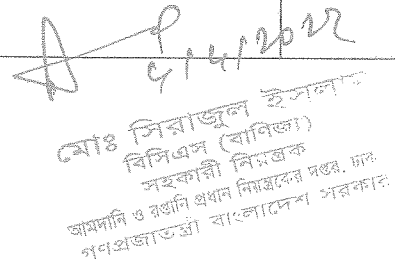 ৮/৮/২০২২
মোঃ সিরাজুল ইসলাম
বিসিএস (বাণিজ্য)
সহকারী নিয়ন্ত্রক
আমদানি ও রপ্তানি প্রধান নিয়ন্ত্রকের দপ্তর, ঢাকা
গণপ্রজাতন্ত্রী বাংলাদেশ সরকার